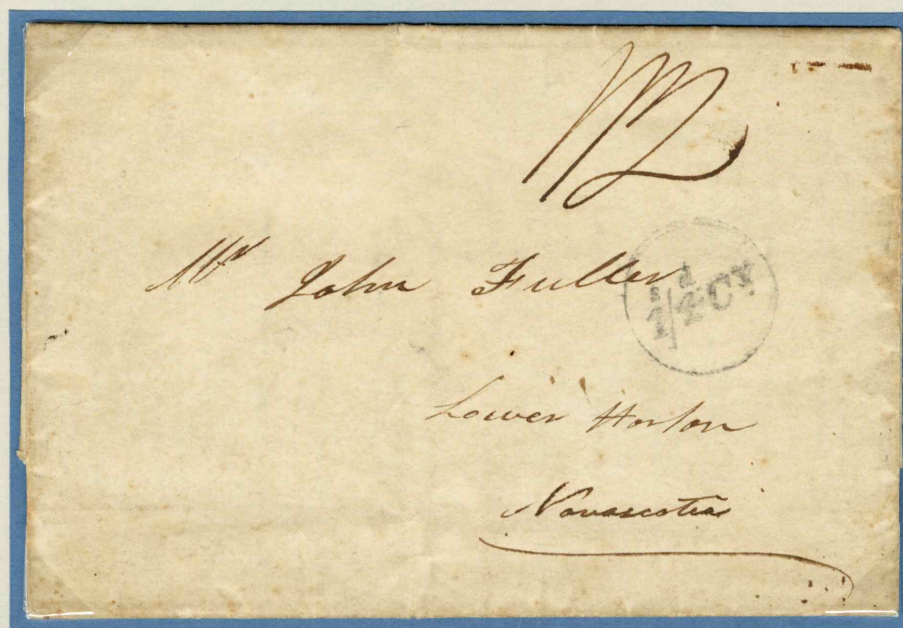 Mr John Fuller
s d
1/4 Cy.
Lower Horton
Novascotia